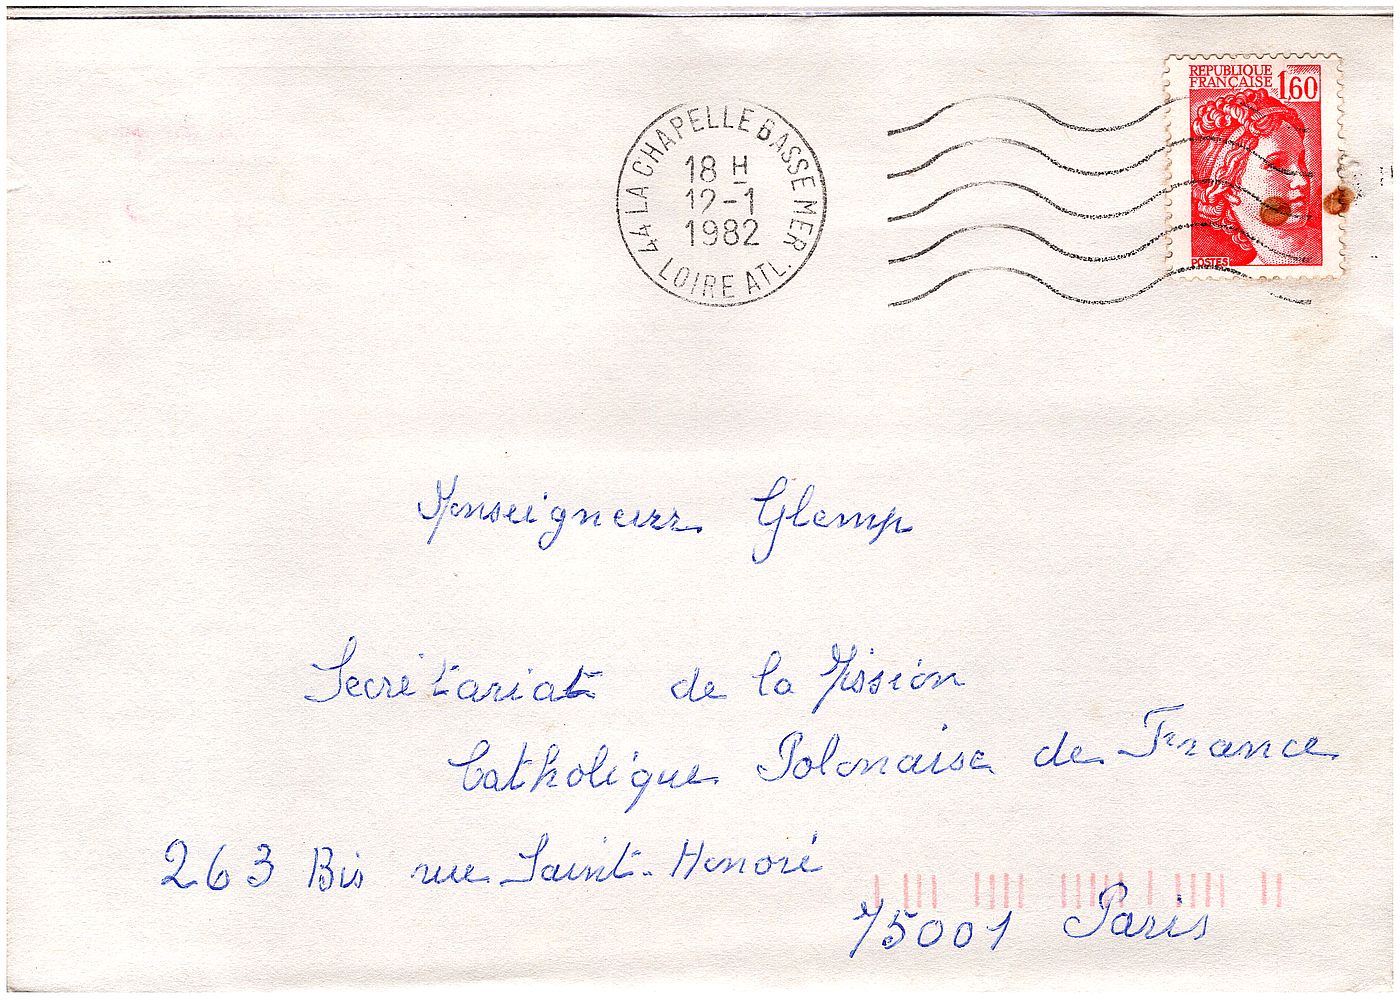 REPUBLIQUE
FRANÇAISE 1,60
POSTES
44 LA CHAPELLE BASSE MER
18 H
12-1
1982
LOIRE ATL.
Monseigneur Glemp
Secrétariat de la Mission
Catholique Polonaise de France
263 Bis rue Saint-Honoré
75001 Paris